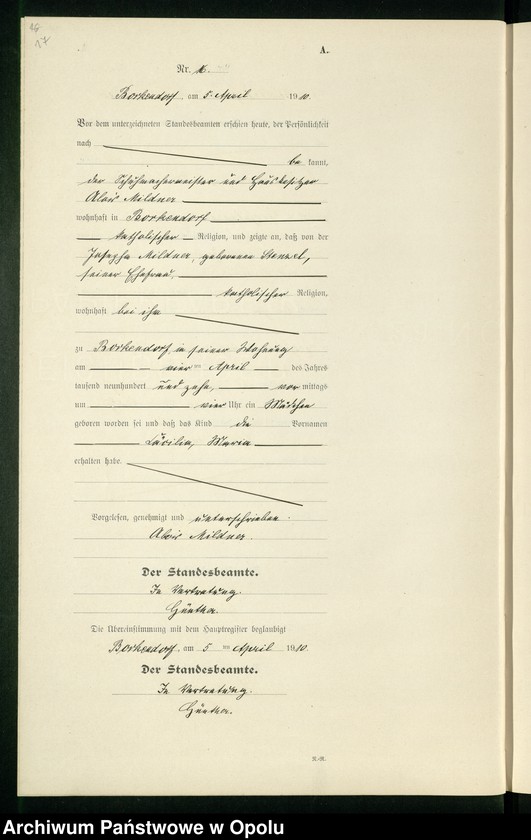 16
17
A.
Nr. 16.
Borkendorf, am 5. April 1910.
Vor dem unterzeichneten Standesbeamten erschien heute, der Persönlichkeit
nach
be kannt,
der Schuhmachermeister und Hausbesitzer
Alois Mildner
wohnhaft in Borkendorf
katholischer Religion, und zeigte an, daß von der
Josepha Mildner, geborenen Stenzel,
seiner Ehefrau,
katholischer Religion,
wohnhaft bei ihm
zu Borkendorf in seiner Wohnung
am vier ten April des Jahres
tausend neunhundert und zehn, vor mittags
um vier Uhr ein Mädchen
geboren worden sei und daß das Kind die Vornamen
Cäcilia, Maria
erhalten habe.
Vorgelesen, genehmigt und unterschrieben.
Alois Mildner.
Der Standesbeamte.
In Vertretung.
Günther.
Die Übereinstimmung mit dem Hauptregister beglaubigt
Borkendorf, am 5 ten April 1910.
Der Standesbeamte.
In Vertretung.
Günther.
R.-R.
Archiwum Państwowe w Opolu